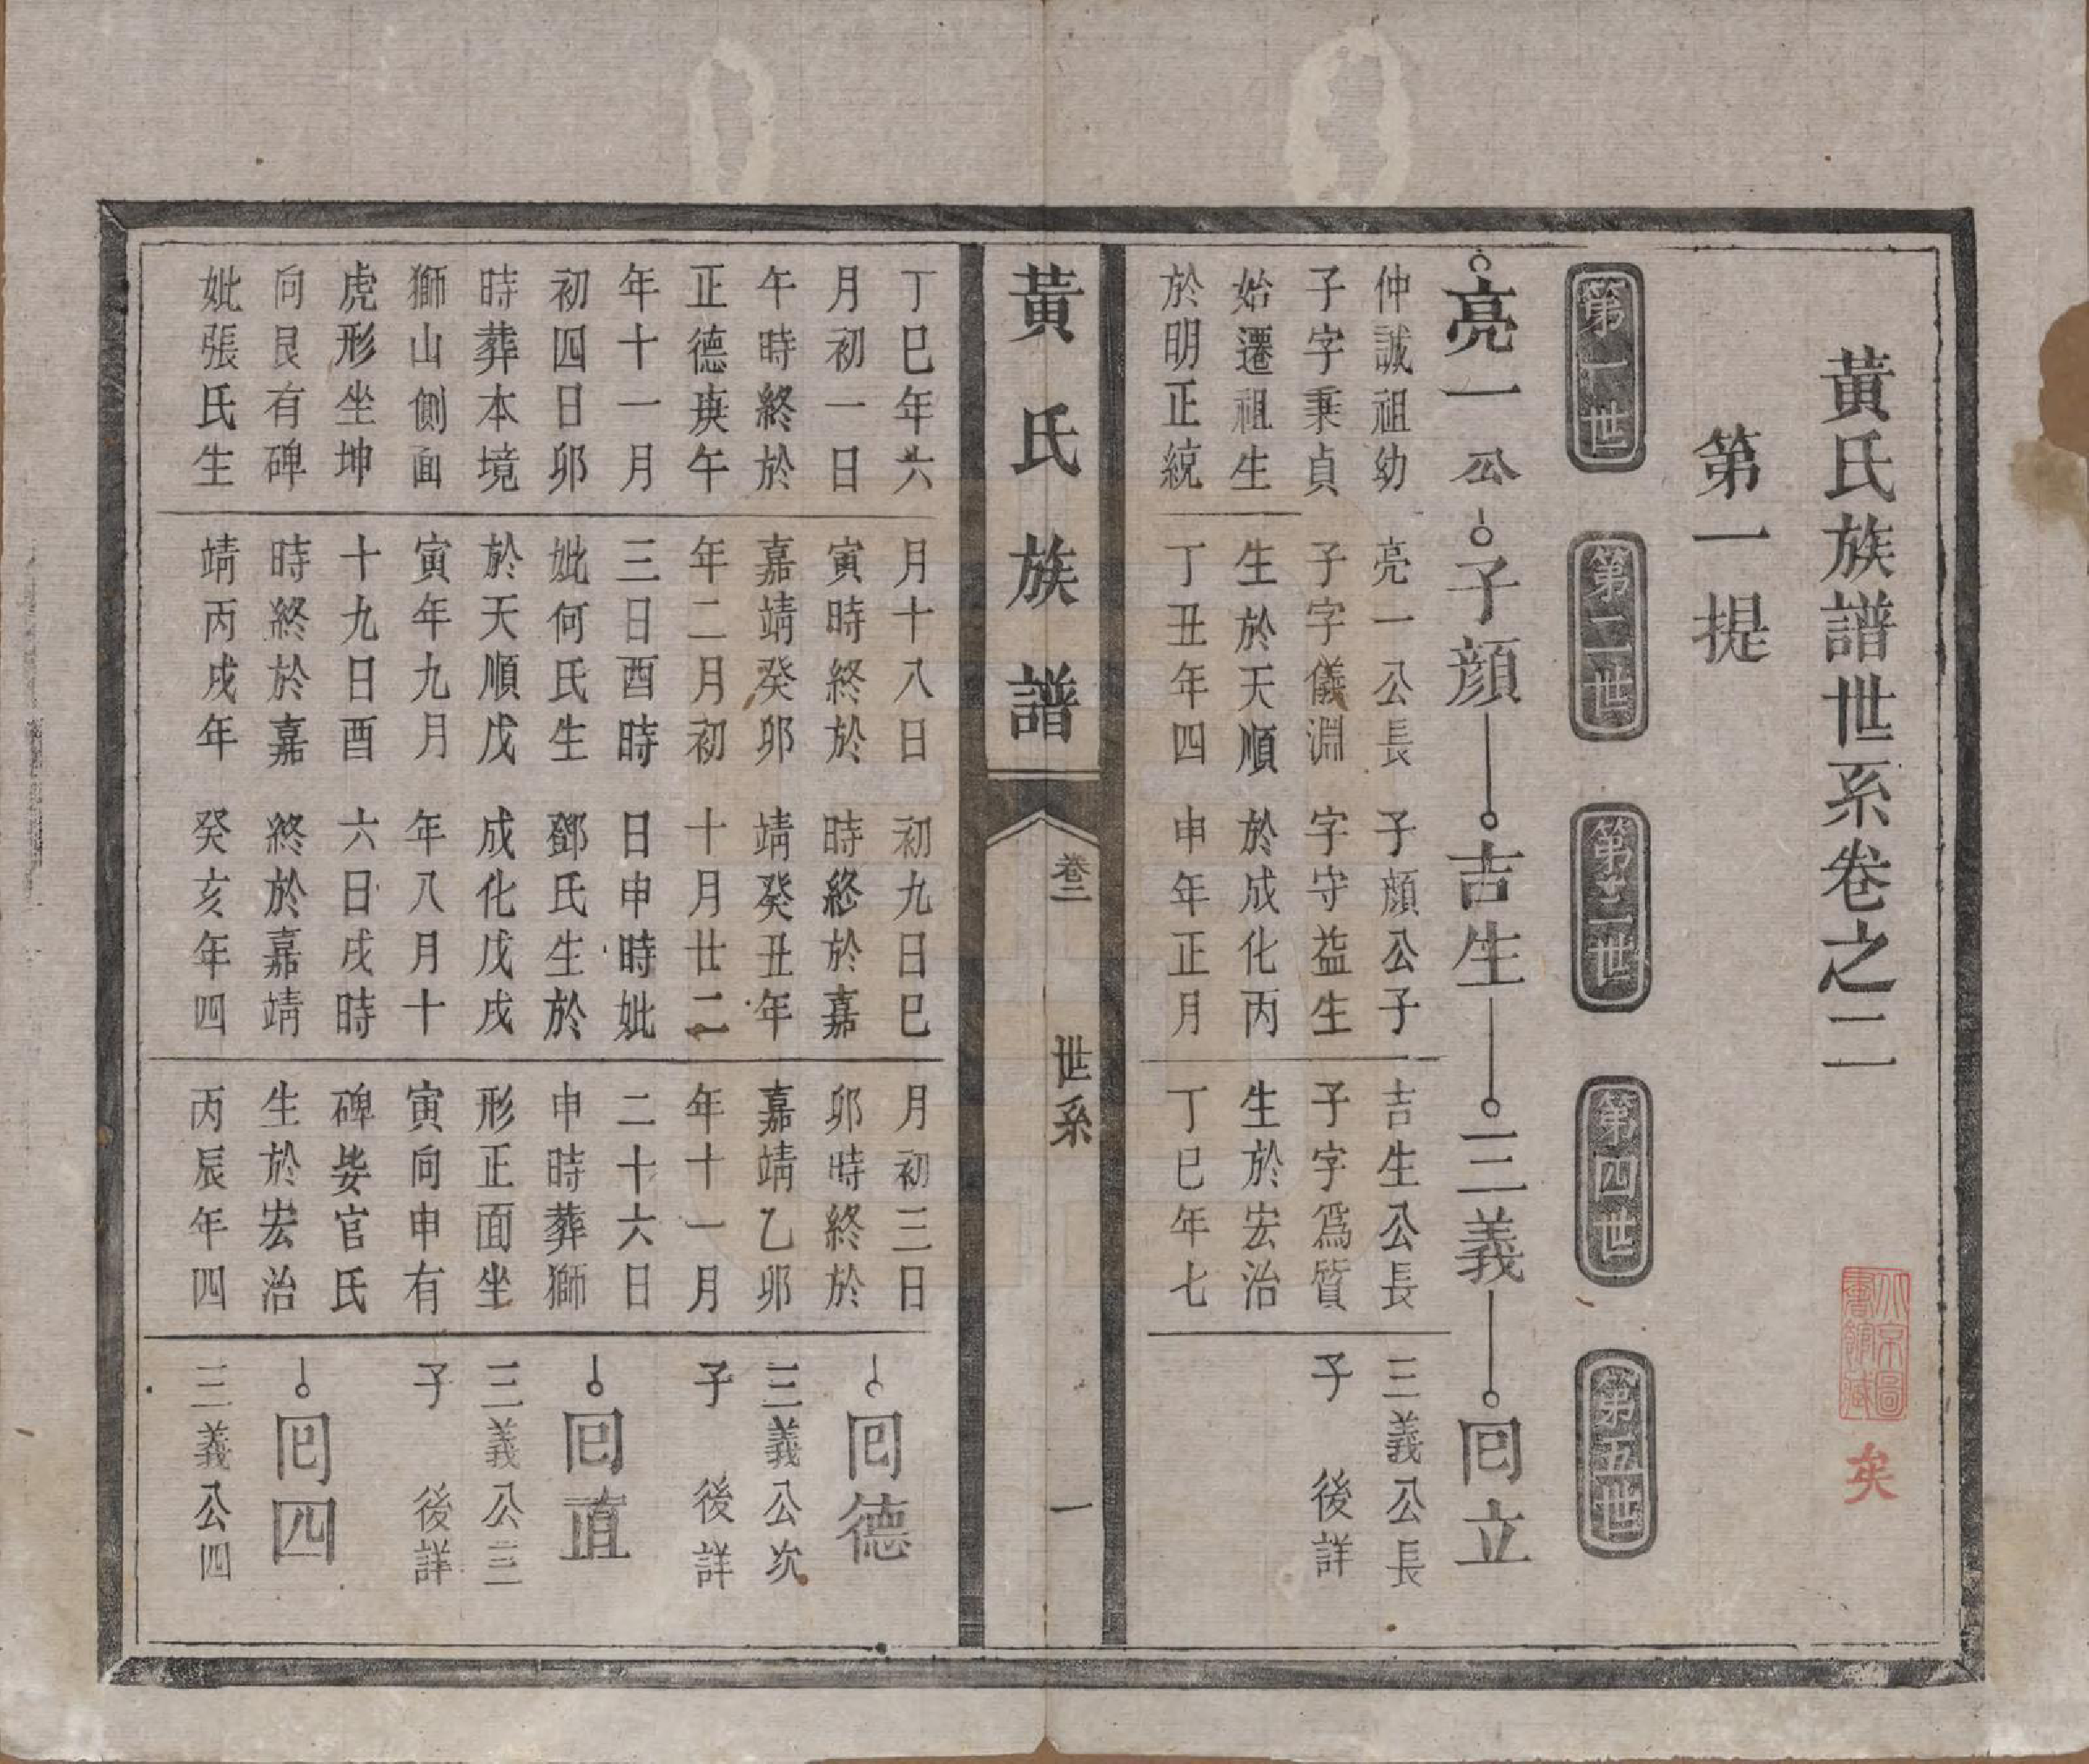 黃氏族譜世系卷之二
第一提
第一世
第二世
第三世
第四世
第五世
亮一公
子顔
吉生
三義
囘立
仲誠祖幼
子字秉貞
始遷祖生
於明正統
丁巳年六
月初一日
午時終於
正德庚午
年十一月
初四日卯
時葬本境
獅山側面
虎形坐坤
向艮有碑
妣張氏生
亮一公長
子字儀淵
生於天順
丁丑年四
月十八日
寅時終於
嘉靖癸卯
年二月初
三日酉時
妣何氏生
於天順戊
寅年九月
十九日酉
時終於嘉
靖丙戌年
子顔公子
字守益生
於成化丙
申年正月
初九日巳
時終於嘉
靖癸丑年
十月廿二
日申時妣
鄧氏生於
成化戊戌
年八月十
六日戌時
終於嘉靖
癸亥年四
吉生公長
子字爲質
生於宏治
丁巳年七
月初三日
卯時終於
嘉靖乙卯
年十一月
二十六日
申時葬獅
形正面坐
寅向申有
碑娶官氏
生於宏治
丙辰年四
三義公長
子 後詳
囘德
三義公次
子 後詳
囘直
三義公三
子 後詳
囘四
三義公四
黃氏族譜
卷二
世系
一
北京圖書館藏